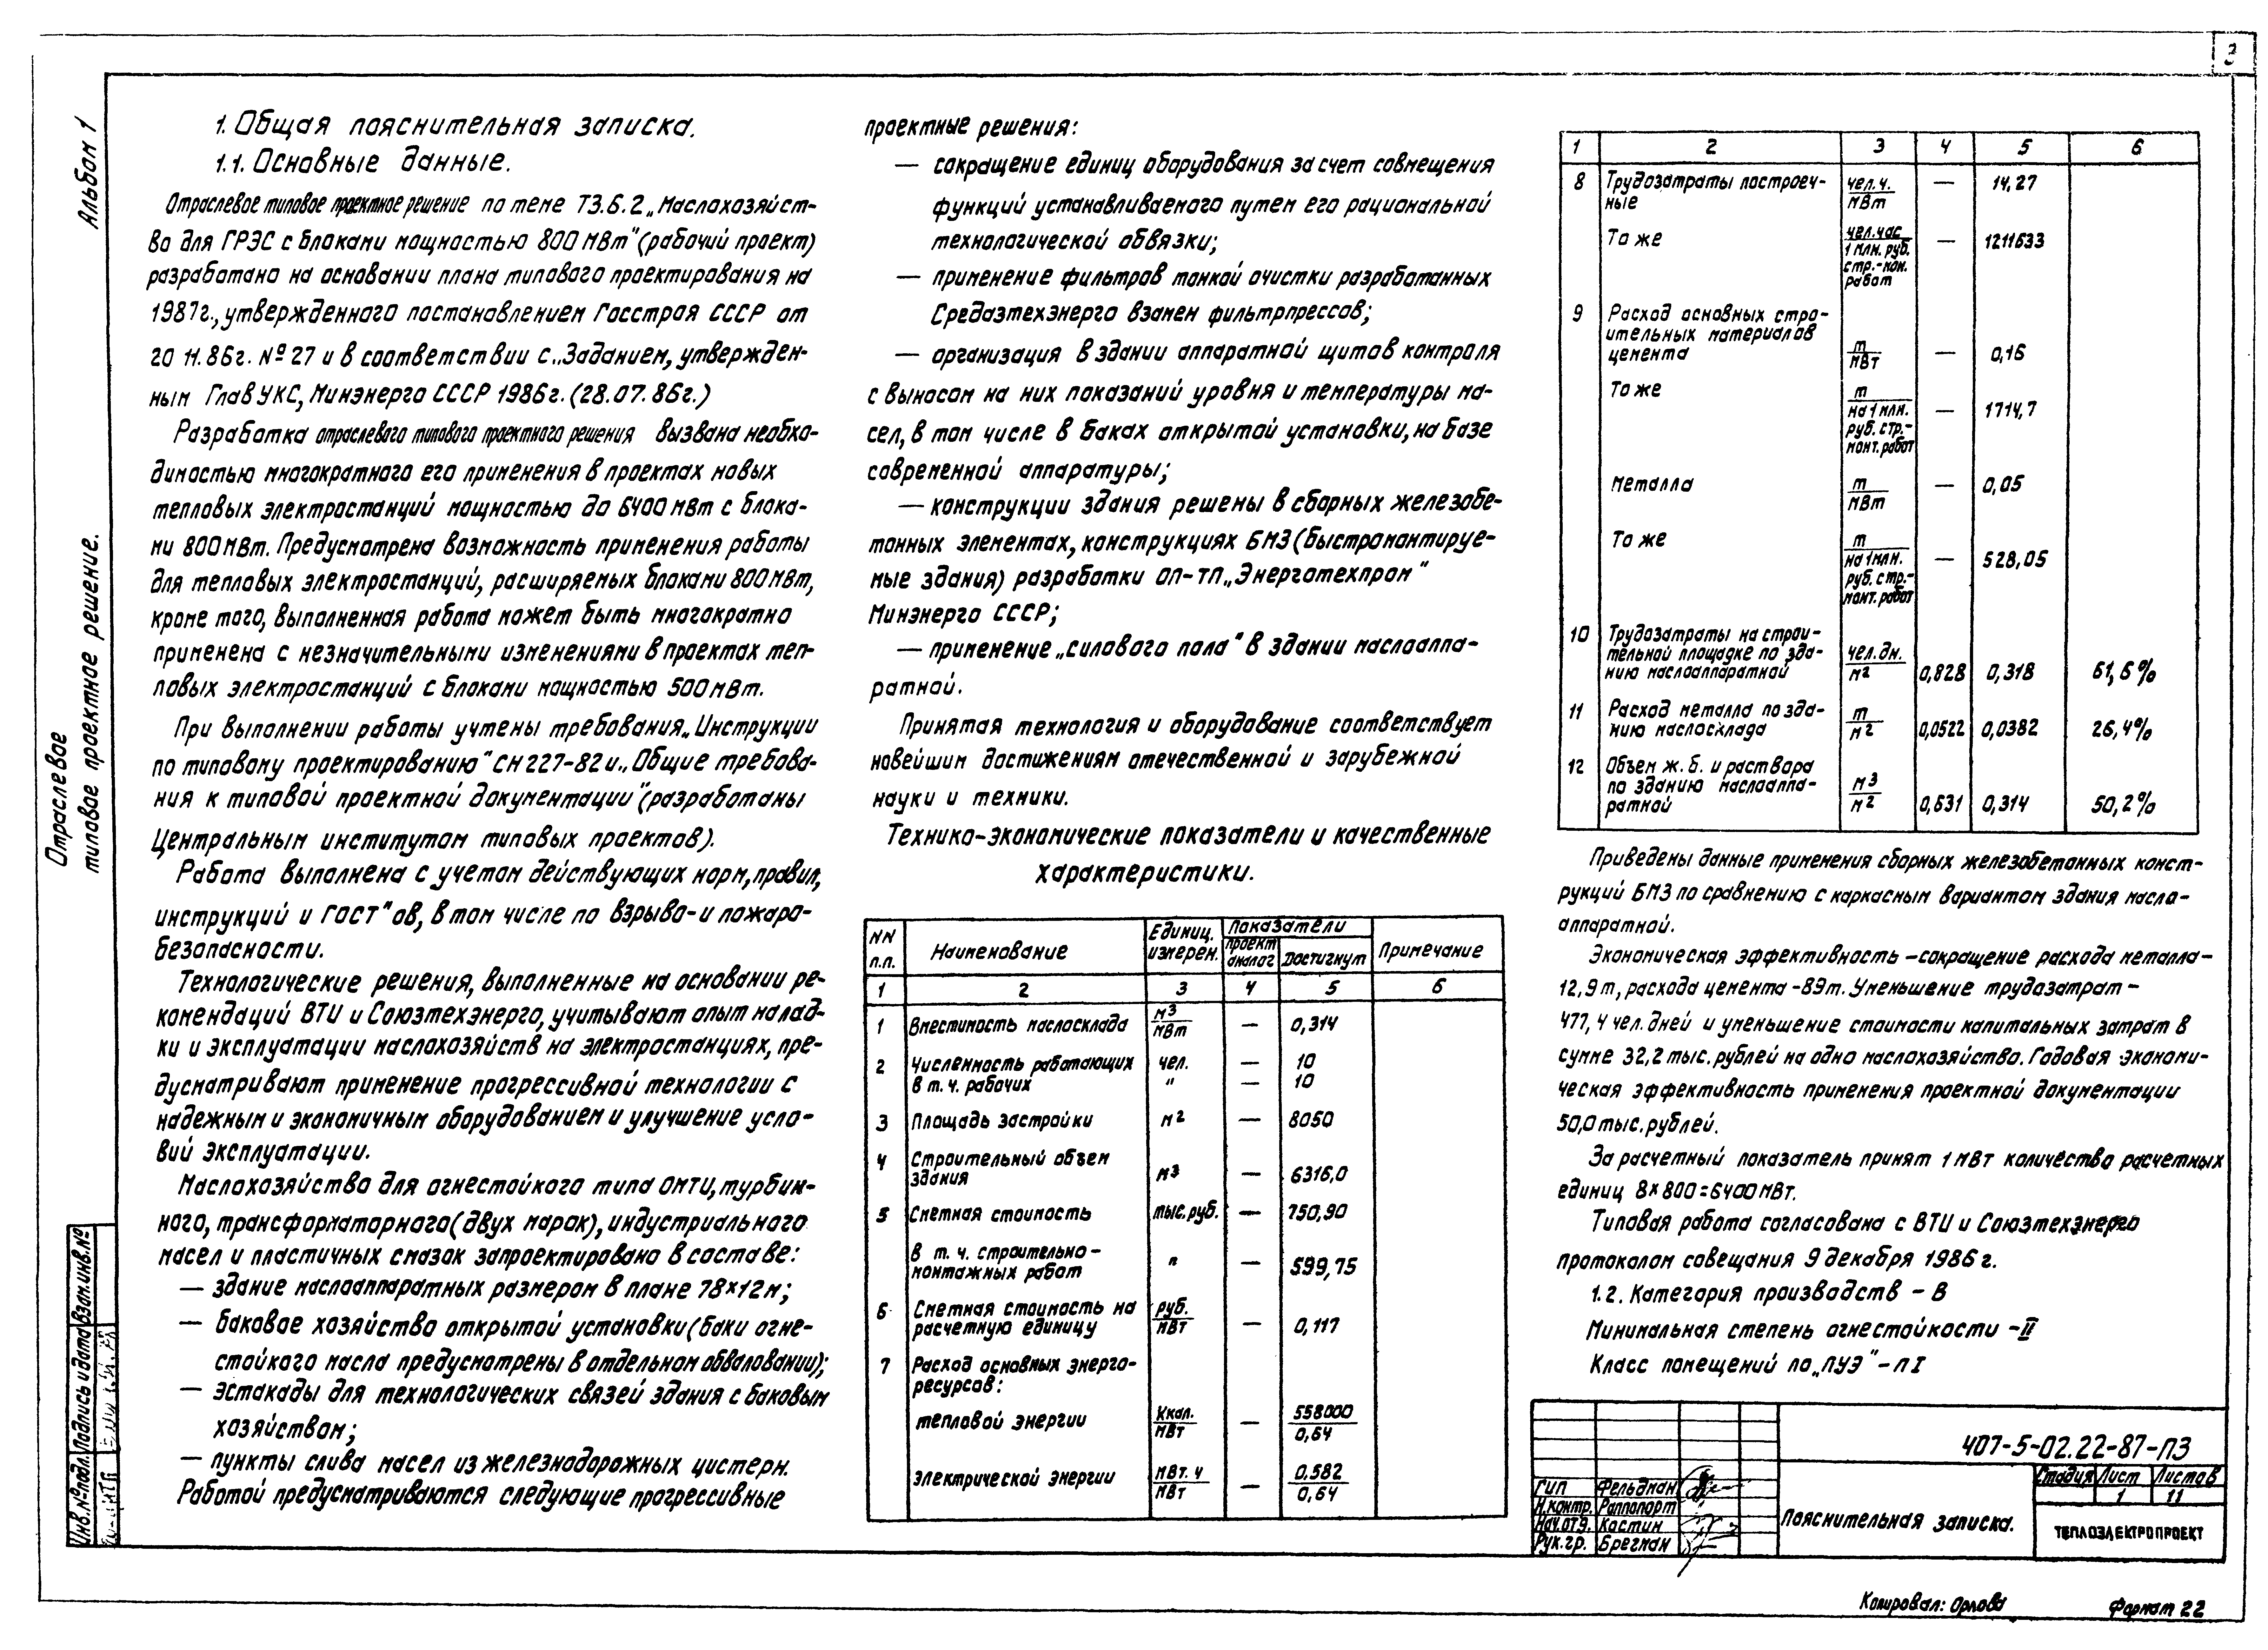 3
Альбом 1
Отраслевое
типовое проектное решение.
1. Общая пояснительная записка.
1.1. Основные данные.
Отраслевое типовое проектное решение по теме Т3.6.2 „Маслохозяйст-
во для ГРЭС с блоками мощностью 800 МВт" (рабочий проект)
разработано на основании плана типового проектирования на
1987г., утвержденного постановлением Госстроя СССР от
20 11.86г. №27 и в соответствии с „Заданием, утвержден-
ным ГлавУКС, Минэнерго СССР 1986г. (28.07.86г.)
Разработка отраслевого типового проектного решения вызвана необхо-
димостью многократного его применения в проектах новых
тепловых электростанций мощностью до 6400 МВт с блока-
ми 800 МВт. Предусмотрена возможность применения работы
для тепловых электростанций, расширяемых блоками 800 МВт,
кроме того, выполненная работа может быть многократно
применена с незначительными изменениями в проектах теп-
ловых электростанций с блоками мощностью 500 МВт.
При выполнении работы учтены требования „Инструкции
по типовому проектированию" СН 227-82 и „Общие требова-
ния к типовой проектной документации" (разработаны
Центральным институтом типовых проектов).
Работа выполнена с учетом действующих норм, правил,
инструкций и ГОСТ"ов, в том числе по взрыво- и пожаро-
безопасности.
Технологические решения, выполненные на основании ре-
комендаций ВТИ и Союзтехэнерго, учитывают опыт налад-
ки и эксплуатации маслохозяйств на электростанциях, пре-
дусматривают применение прогрессивной технологии с
надежным и экономичным оборудованием и улучшение усло-
вий эксплуатации.
Маслохозяйства для огнестойкого типа ОМТИ, турбин-
ного, трансформаторного (двух марок), индустриального
масел и пластичных смазок запроектировано в составе:
— здание маслоаппаратных размером в плане 78×12м;
— баковое хозяйство открытой установки (баки огне-
стойкого масла предусмотрены в отдельном обваловании);
— эстакады для технологических связей здания с баковым
хозяйством;
— пункты слива масел из железнодорожных цистерн.
Работой предусматриваются следующие прогрессивные
проектные решения:
— сокращение единиц оборудования за счет совмещения
функций устанавливаемого путем его рациональной
технологической обвязки;
— применение фильтров тонкой очистки разработанных
Средазтехэнерго взамен фильтрпрессов;
— организация в здании аппаратной щитов контроля
с выносом на них показаний уровня и температуры ма-
сел, в том числе в баках открытой установки, на базе
современной аппаратуры;
— конструкции здания решены в сборных железобе-
тонных элементах, конструкциях БМЗ (быстромонтируе-
мые здания) разработки ОП-ТП „Энерготехпром"
Минэнерго СССР;
— применение „силового пола" в здании маслоаппа-
ратной.
Принятая технология и оборудование соответствует
новейшим достижениям отечественной и зарубежной
науки и техники.
Технико-экономические показатели и качественные
характеристики.
NN п.п. Наименование Единиц. измерен. Показатели Примечание
проект аналог Достигнут
1 2 3 4 5 6
1 Вместимость маслосклада м3/МВт — 0,314
2 Численность работающих чел. — 10
в т.ч. рабочих " — 10
3 Площадь застройки м2 — 8050
4 Строительный объем
здания м3 — 6316,0
5 Сметная стоимость тыс.руб. — 750,90
в т.ч. строительно-
монтажных работ " — 599,75
6 Сметная стоимость на руб.
расчетную единицу МВт — 0,117
7 Расход основных энерго-
ресурсов:
тепловой энергии Ккал./МВт — 558000/0,64
электрической энергии МВт.ч/МВт — 0.582/0,64
1 2 3 4 5 6
8 Трудозатраты построеч- чел.ч. — 14,27
ные МВт
То же чел.час — 1211633
1 млн. руб.
стр.-мон.
работ
9 Расход основных стро-
ительных материалов
цемента т/МВт — 0,16
То же т
на 1 млн. — 1714,7
руб. стр.-
монт. работ
металла т/МВт — 0,05
То же т
на 1 млн. — 528,05
руб. стр.-
монт. работ
10 Трудозатраты на строи-
тельной площадке по зда- чел.дн.
нию маслоаппаратной м2 0,828 0,318 61,6%
11 Расход металла по зда- т
нию маслосклада м2 0,0522 0,0382 26,4%
12 Объем ж.б. и раствора
по зданию маслоаппа- м3
ратной м2 0,631 0,314 50,2%
Приведены данные применения сборных железобетонных конст-
рукций БМЗ по сравнению с каркасным вариантом здания масло-
аппаратной.
Экономическая эффективность – сокращение расхода металла –
12,9т, расхода цемента – 89т. Уменьшение трудозатрат –
477,4 чел. дней и уменьшение стоимости капитальных затрат в
сумме 32,2 тыс. рублей на одно маслохозяйство. Годовая экономи-
ческая эффективность применения проектной документации
50,0 тыс. рублей.
За расчетный показатель принят 1 МВт количества расчетных
единиц 8×800=6400 МВт.
Типовая работа согласована с ВТИ и Союзтехэнерго
протоколом совещания 9 декабря 1986г.
1.2. Категория производств – В
Минимальная степень огнестойкости – II
Класс помещений по „ПУЭ" – П I
407-5-02.22-87-ПЗ
Стадия Лист Листов
1 11
ГИП Фельдман
Н.контр. Раппопорт
Нач.отд. Костин
Рук.гр. Брегман
Пояснительная записка.
ТЕПЛОЭЛЕКТРОПРОЕКТ
Инв.№ подл. Подпись и дата Взам.инв.№
Копировал: Орлова Формат 22